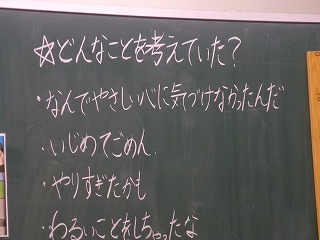 ☆どんなことを考えていた?
・なんでやさしい心に気づけなかったんだ
・いじめてごめん.
・やりすぎたかも
・わるいことをしちゃったな